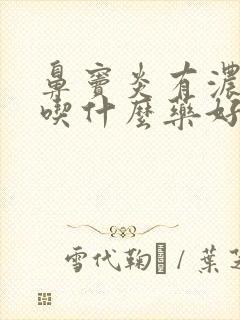 鼻竇炎有濃
喫什麼藥好
雪代鞠 / 葉芝